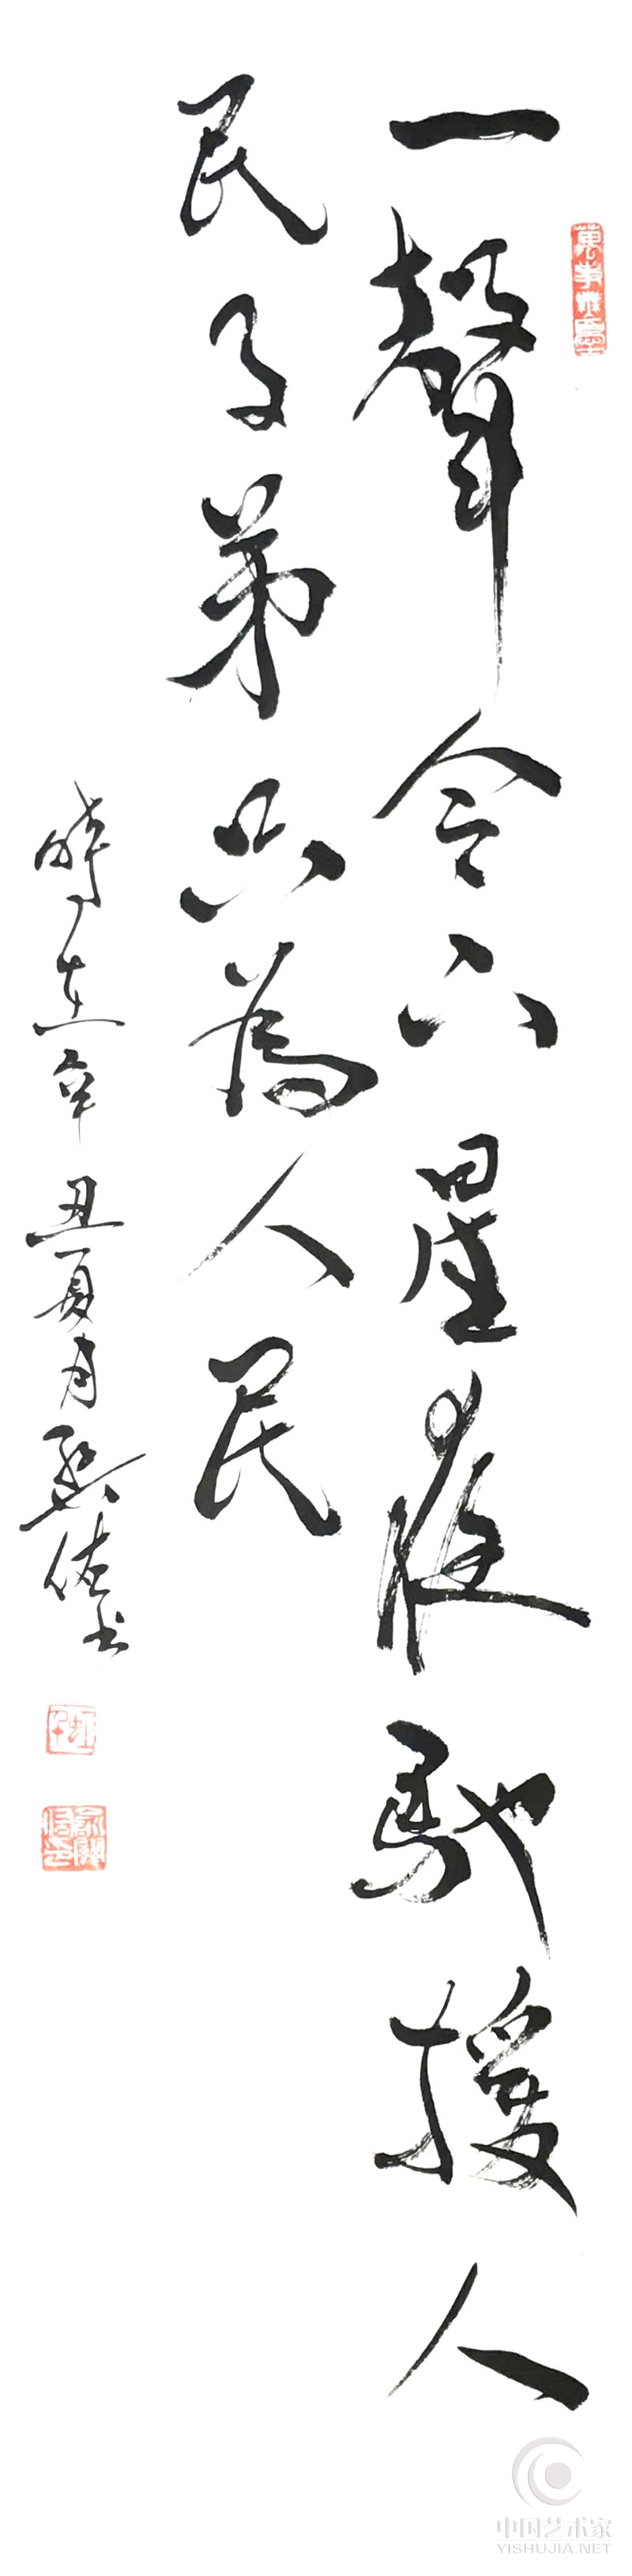 一聲令下星夜馳援人
民子弟只為人民
時在辛丑夏月熙佑书
中国艺术家
YISHUJIA.NET